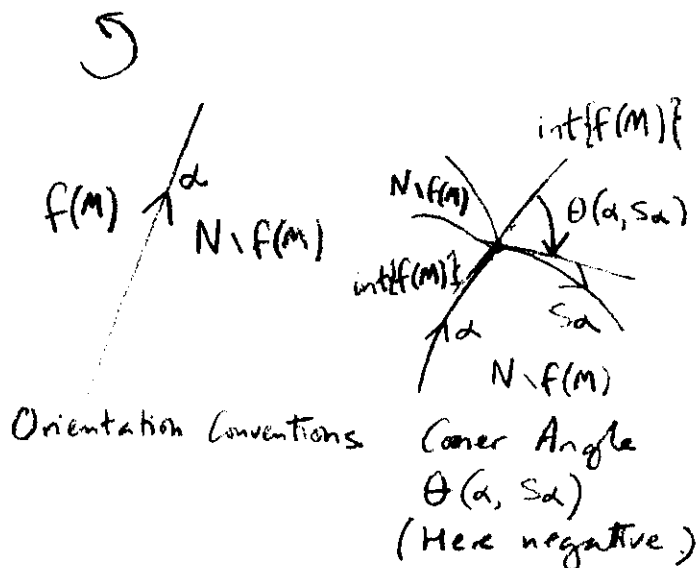 f(M)
α
N \ f(M)
Orientation Conventions
int{f(M)}
N\f(M)
θ(α, Sα)
int{f(M)}
α
Sα
N \ f(M)
Corner Angle
θ(α, Sα)
(Here negative.)